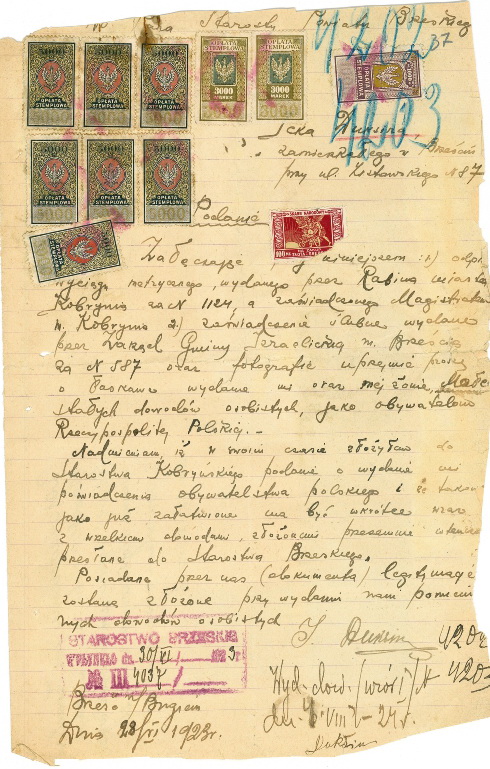 Starosty Powiatu Brzeskiego
37
5000 5000 5000
OPŁATA STEMPLOWA
OPŁATA STEMPLOWA
OPŁATA STEMPLOWA
OPŁATA STEMPLOWA 3000 MAREK
OPŁATA STEMPLOWA 3000 MAREK
OPŁATA STEMPLOWA
5000 5000 5000
OPŁATA STEMPLOWA
OPŁATA STEMPLOWA
OPŁATA STEMPLOWA
Icka
zamieszkałego w Brześciu
przy ul. N 87
Podanie
OPŁATA STEMPLOWA
SKARB NARODOWY
Załączając niniejszem: 1) odpis
wyciągu metrycznego, wydanego przez Rabina miasta
Kobrynia za N 1124, a zaświadczonego Magistratem
m. Kobrynia 2) zaświadczenie ślubne wydane
przez Zarząd Gminy Izraelickiej m. Brześcia
za N 587 oraz fotografie uprzejmie proszę
o łaskawe wydanie mi oraz mej żonie,
stałych dowodów osobistych, jako obywatelom
Rzeczypospolitej Polskiej.-
Nadmieniam, iż w swoim czasie złożyłem do
Starostwa Kobryńskiego podanie o wydanie mi
poświadczenia obywatelstwa polskiego i że takowe
jako już załatwione ma być wkrótce wraz
z wszelkiemi dowodami, złożonemi przezemnie
przesłane do Starostwa Brzeskiego.
Posiadane przez nas (dokumenta) legitymacje
zostaną złożone przy wydaniu nam pomienio-
nych dowodów osobistych
STAROSTWO BRZESKIE
dn. 30/VI 1923 r.
№ III 4037
I.
420
Wyd. dow. N 420
Brześć n/Bugiem
Dnia 28/VI 1923r.